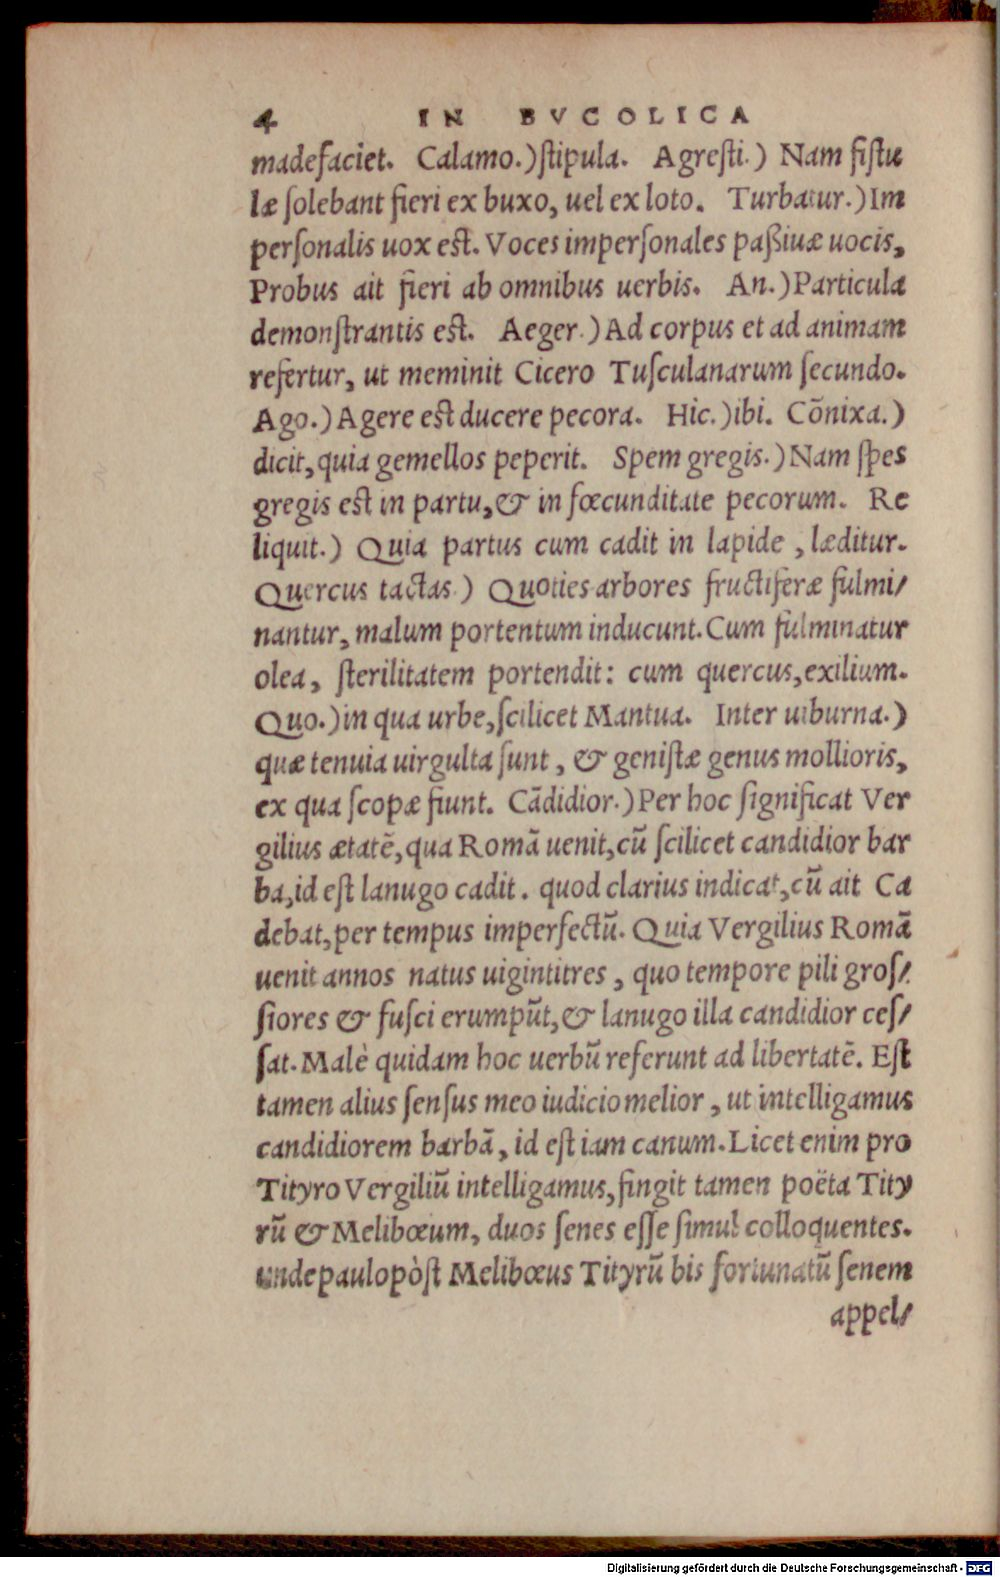 4 IN BVCOLICA
madefaciet. Calamo.) ſtipula. Agreſti.) Nam fiſtu
læ ſolebant fieri ex buxo, uel ex loto. Turbatur.) Im
perſonalis uox eſt. Voces imperſonales paßiuæ uocis,
Probus ait fieri ab omnibus uerbis. An.) Particula
demonſtrantis eſt. Aeger.) Ad corpus et ad animam
refertur, ut meminit Cicero Tuſculanarum ſecundo.
Ago.) Agere eſt ducere pecora. Hic.) ibi. Cõnixa.)
dicit, quia gemellos peperit. Spem gregis.) Nam ſpes
gregis eſt in partu, & in fœcunditate pecorum. Re
liquit.) Quia partus cum cadit in lapide, læditur.
Quercus tactas.) Quoties arbores fructiferæ fulmi/
nantur, malum portentum inducunt. Cum fulminatur
olea, ſterilitatem portendit: cum quercus, exilium.
Quo.) in qua urbe, ſcilicet Mantua. Inter uiburna.)
quæ tenuia uirgulta ſunt, & geniſtæ genus mollioris,
ex qua ſcopæ fiunt. Cãdidior.) Per hoc ſignificat Ver
gilius ætatẽ, qua Romã uenit, cũ ſcilicet candidior bar
ba, id eſt lanugo cadit. quod clarius indicat, cũ ait Ca
debat, per tempus imperfectũ. Quia Vergilius Romã
uenit annos natus uigintitres, quo tempore pili groſ/
ſiores & fuſci erumpũt, & lanugo illa candidior ceſ/
ſat. Malè quidam hoc uerbũ referunt ad libertatẽ. Eſt
tamen alius ſenſus meo iudicio melior, ut intelligamus
candidiorem barbã, id eſt iam canum. Licet enim pro
Tityro Vergiliũ intelligamus, fingit tamen poëta Tity
rũ & Melibœum, duos ſenes eſſe ſimul colloquentes.
unde paulopòſt Melibœus Tityrũ bis fortunatũ ſenem
appel/
Digitalisierung gefördert durch die Deutsche Forschungsgemeinschaft - DFG